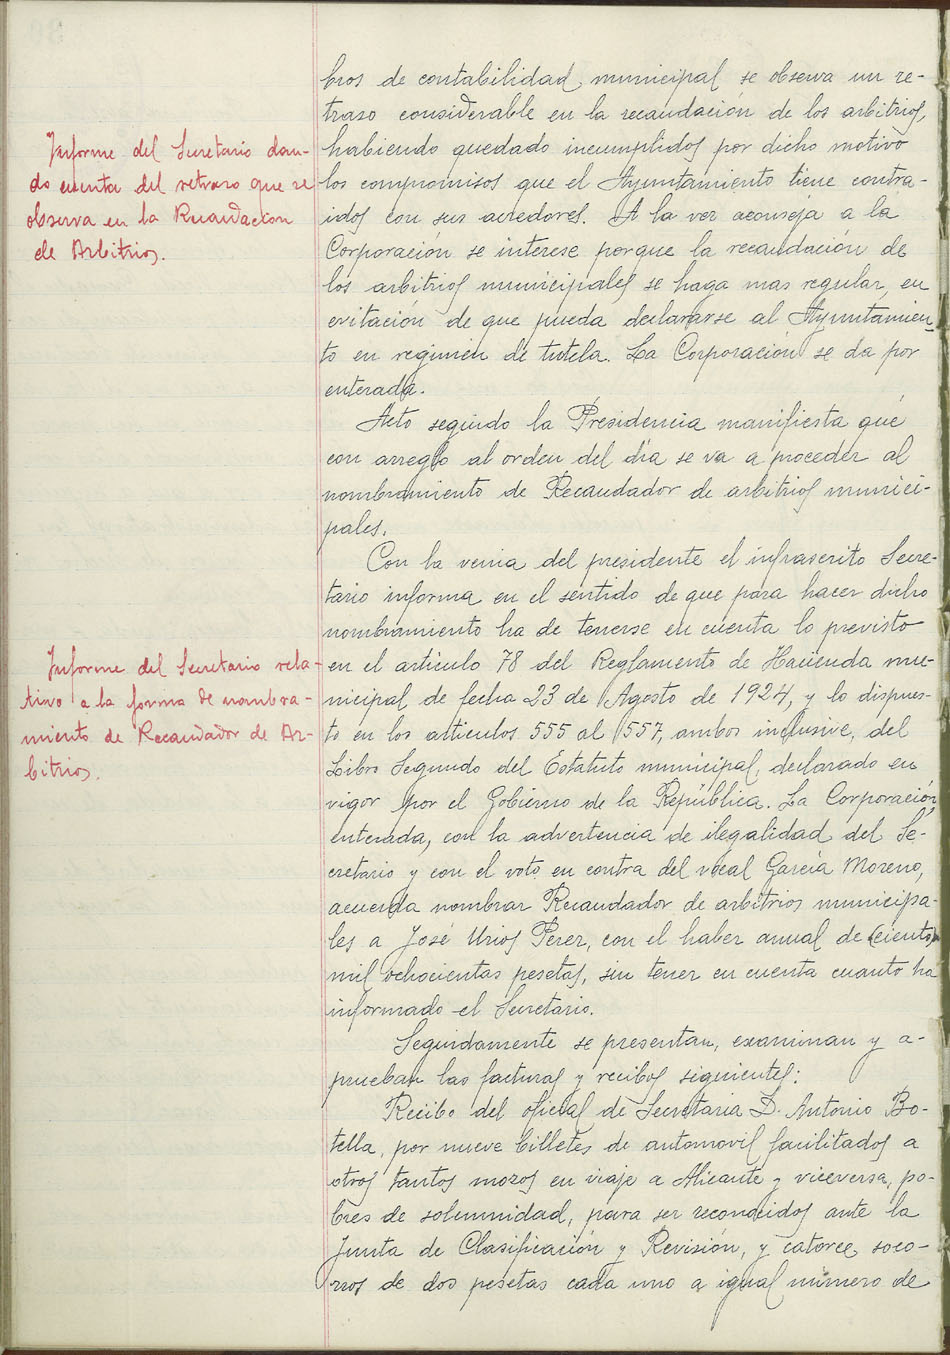 Informe del Secretario dan-
do cuenta del retraso que se
observa en la Recaudacion
de Arbitrios.
Informe del Secretario rela-
tivo a la forma de nombra-
miento de Recaudador de Ar-
bitrios.
bros de contabilidad municipal se observa un re-
traso considerable en la recaudación de los arbitrios,
habiendo quedado incumplidos por dicho motivo
los compromisos que el Ayuntamiento tiene contra-
idos con sus acredores. A la vez aconseja a la
Corporación se interese porque la recaudación de
los arbitrios municipales se haga mas regular, en
evitación de que pueda declararse al Ayuntamien-
to en regimen de tutela. La Corporación se da por
enterada.
Acto seguido la Presidencia manifiesta que
con arreglo al orden del día se va a proceder al
nombramiento de Recaudador de arbitrios munici-
pales.
Con la venia del presidente el infrascrito Secre-
tario informa en el sentido de que para hacer dicho
nombramiento ha de tenerse en cuenta lo previsto
en el artículo 78 del Reglamento de Hacienda mu-
nicipal de fecha 23 de Agosto de 1924, y lo dispues-
to en los articulos 555 al 557, ambos inclusive, del
Libro Segundo del Estatuto municipal, declarado en
vigor por el Gobierno de la República. La Corporación,
enterada, con la advertencia de ilegalidad del Se-
cretario y con el voto en contra del vocal García Moreno,
acuerda nombrar Recaudador de arbitrios municipa-
les a José Urios Perez, con el haber anual de (ciento)
mil ochocientas pesetas, sin tener en cuenta cuanto ha
informado el Secretario.
Seguidamente se presentan, examinan y a-
prueban las facturas y recibos siguientes:
Recibo del oficial de Secretaria D. Antonio Bo-
tella, por nueve billetes de automovil facilitados a
otros tantos mozos en viaje a Alicante y viceversa, po-
bres de solemnidad, para ser reconocidos ante la
Junta de Clasificación y Revisión, y catorce soco-
rros de dos pesetas cada uno a igual número de